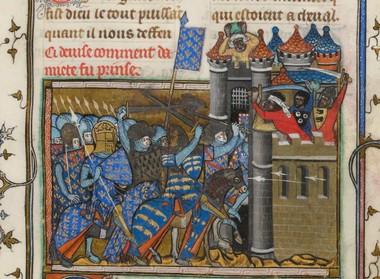 fist dieu le tout
quant il nous deffen
Ci deuise comment da
miete fu prinse.
qui estoient a cheual.